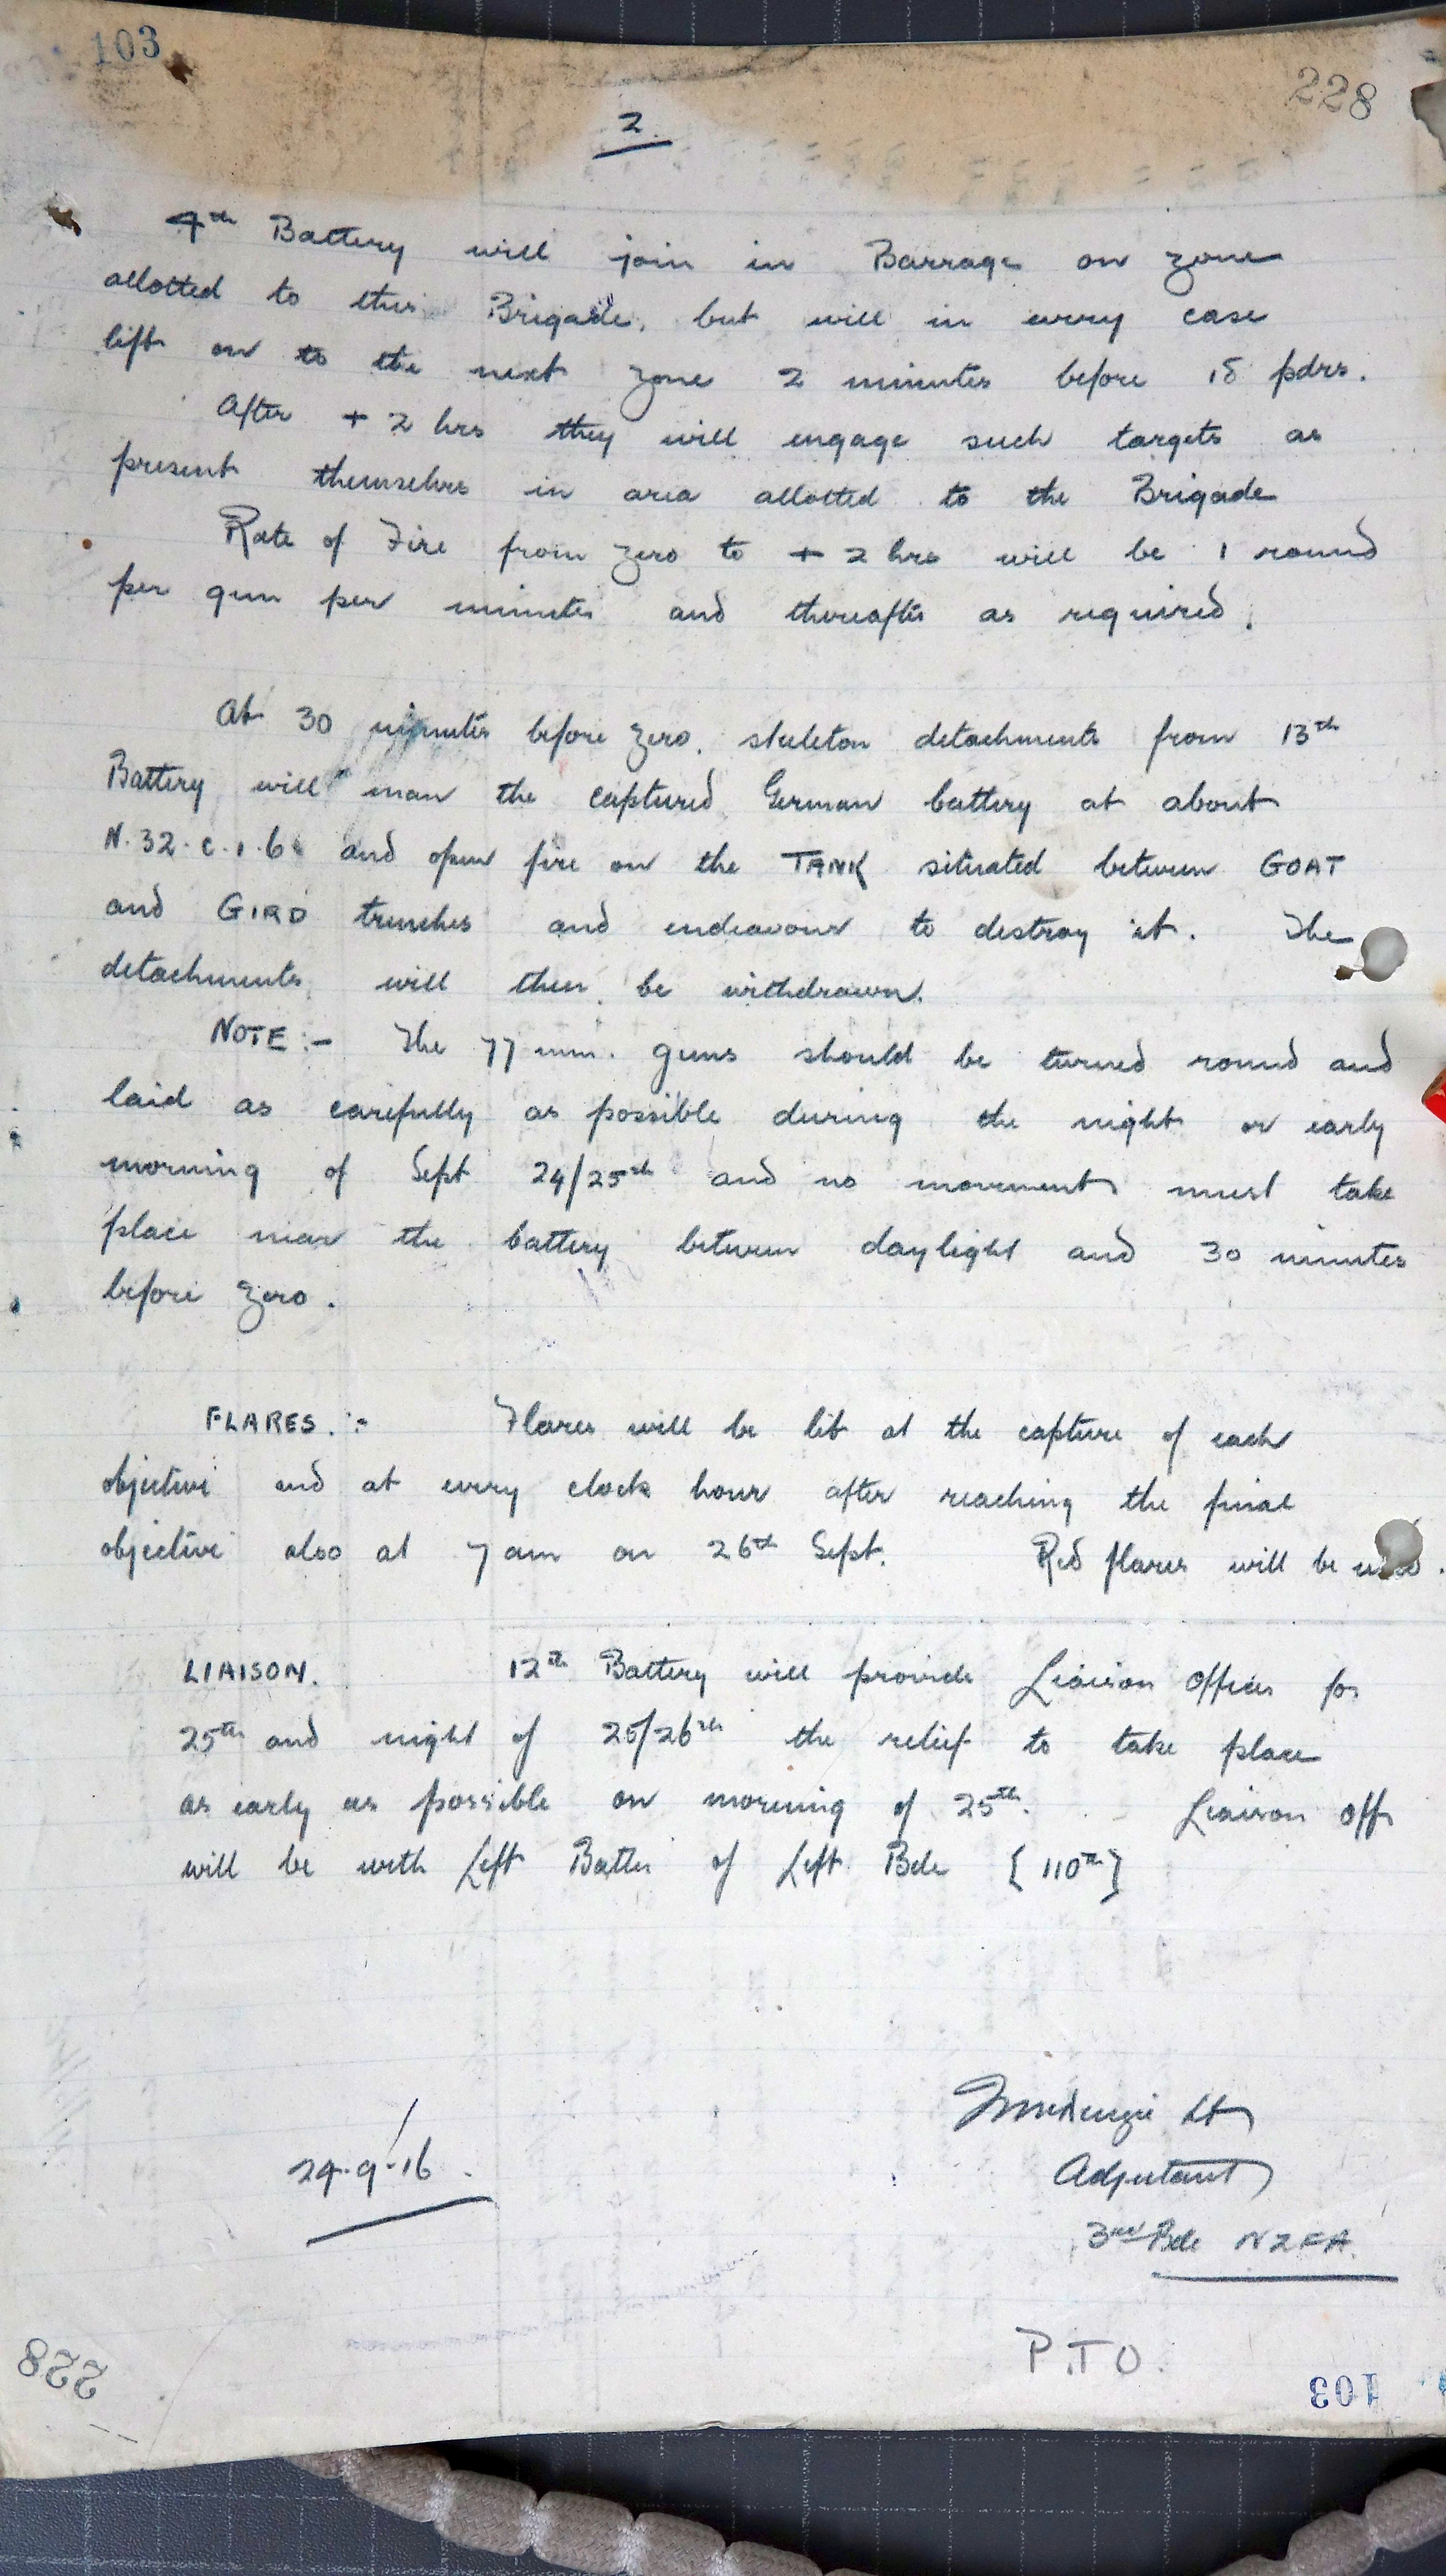 103
228
2.
4th Battery will join in Barrage on zone
allotted to this Brigade, but will in every case
lift on to the next zone 2 minutes before 18 pdrs.
After + 2 hrs they will engage such targets as
present themselves in area allotted to the Brigade
Rate of Fire from zero to + 2 hrs will be 1 round
per gun per minute and thereafter as required.
At 30 minutes before zero, skeleton detachments from 13th
Battery will man the captured German battery at about
N.32.c.1.6 and open fire on the TANK situated between GOAT
and GIRD trenches and endeavour to destroy it. The
detachments will then be withdrawn.
NOTE:- The 77 mm. guns should be turned round and
laid as carefully as possible during the night or early
morning of Sept 24/25th and no movement must take
place near the battery between daylight and 30 minutes
before zero.
FLARES. :- Flares will be lit at the capture of each
objective and at every clock hour after reaching the final
objective also at 7 am on 26th Sept. Red flares will be used.
LIAISON. 12th Battery will provide Liaison Officer for
25th and night of 25/26th the relief to take place
as early as possible on morning of 25th. Liaison Offr
will be with Left Battn of Left Bde {110th}
24.9.16.
Lt
Adjutant
3rd Bde NZFA.
P.T.O.
228
103